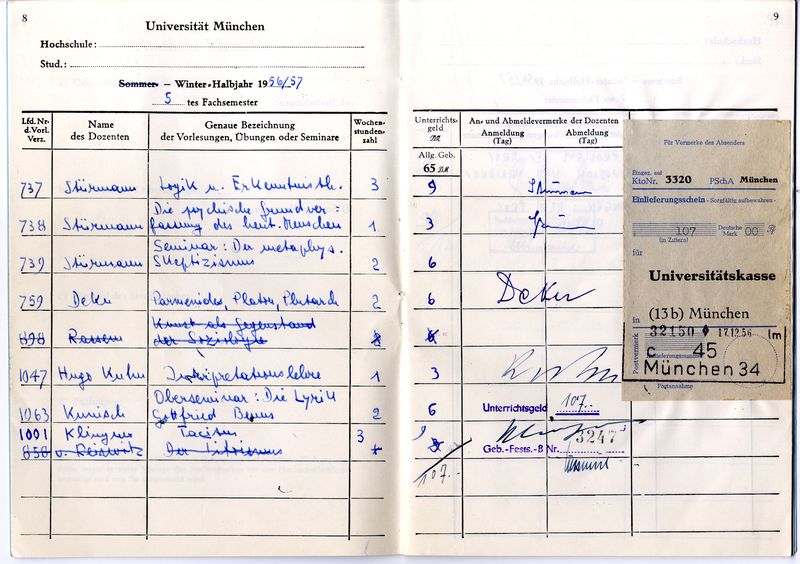 8
Universität München
Hochschule:
Stud.:
Sommer- – Winter-Halbjahr 1956/57
5 tes Fachsemester
Lfd. Nr. d. Vorl. Verz.
Name des Dozenten
Genaue Bezeichnung der Vorlesungen, Übungen oder Seminare
Wochenstundenzahl
737 Stürmann Logik u. Erkenntnisth. 3
Die psychische Grundver=
738 Stürmann fassung des heut. Menschen 1
Seminar: Der metaphys.
739 Stürmann Skeptizismus 2
759 Deku Parmenides, Platon, Plutarch 2
Kunst als Gegenstand
898 Rassem der Soziologie 2
1047 Hugo Kuhn Interpretationslehre 1
Oberseminar: Die Lyrik
1063 Kunisch Gottfried Benns 2
1001 Klingner Tacitus 3
850 v. Reiswitz Der Titoismus
9
Unterrichtsgeld DM
An- und Abmeldevermerke der Dozenten
Anmeldung (Tag)
Abmeldung (Tag)
Allg. Geb.
65 DM
9 Stürmann
3
6
6 Deku
6
3 Kuhn
6 Unterrichtsgeld 107.-
9
Geb.-Festst.-B Nr. 3247
107.-
Für Vermerke des Absenders
Eingez. auf
KtoNr. 3320 PSchA München
Einlieferungsschein - Sorgfältig aufbewahren -
107 Deutsche Mark 00 Pf
(in Ziffern)
für
Universitätskasse
in (13b) München
32150 17.12.56 lm
Postvermerk
Einlieferungsnummer
c 45
München 34
Postannahme